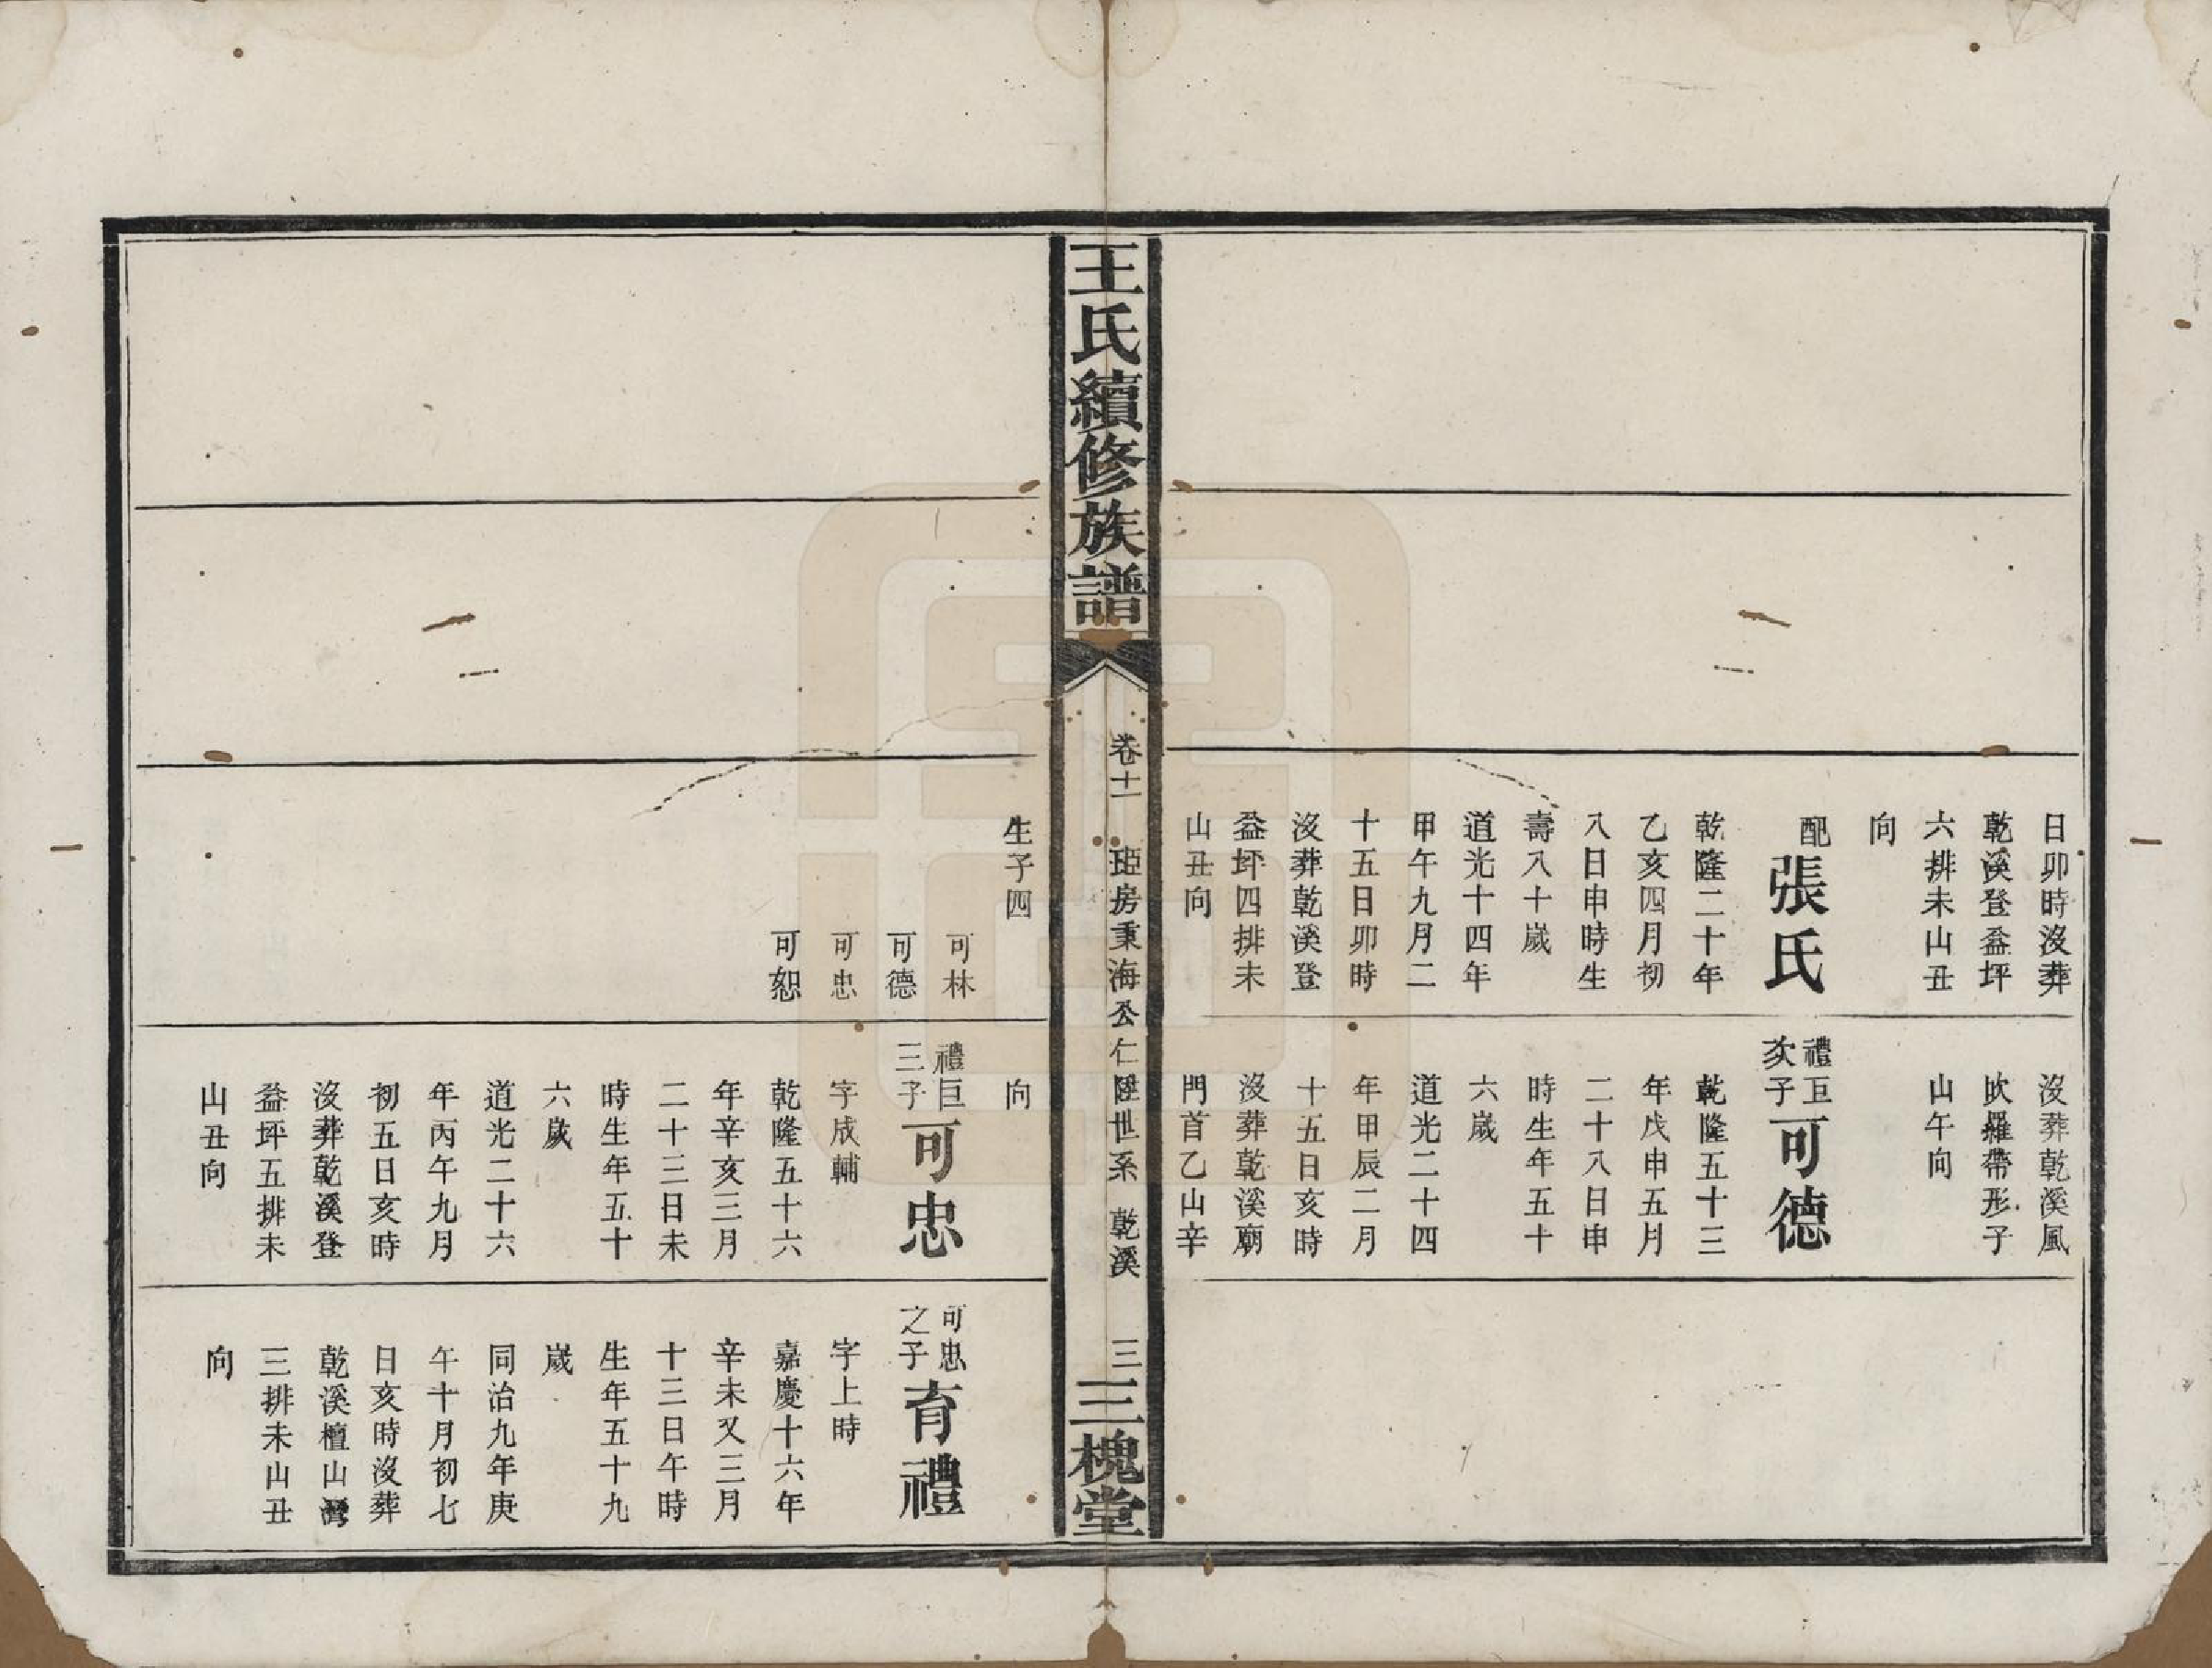 日卯時沒葬
乾溪登益坪
六排未山丑
向
配張氏
乾隆二十年
乙亥四月初
八日申時生
壽八十歲
道光十四年
甲午九月二
十五日卯時
沒葬乾溪登
益坪四排未
山丑向
沒葬乾溪風
吹羅帶形子
山午向
禮巨
次子
可德
乾隆五十三
年戊申五月
二十八日申
時生年五十
六歲
道光二十四
年甲辰二月
十五日亥時
沒葬乾溪廟
門首乙山辛
王氏續修族譜
卷十一
瑥房秉海公仁陞世系 乾溪
三
三槐堂
生子四
可林
可德
可忠
可恕
向
禮巨
三子
可忠
字成輔
乾隆五十六
年辛亥三月
二十三日未
時生年五十
六歲
道光二十六
年丙午九月
初五日亥時
沒葬乾溪登
益坪五排未
山丑向
可忠
之子
育禮
字上時
嘉慶十六年
辛未又三月
十三日午時
生年五十九
歲
同治九年庚
午十月初七
日亥時沒葬
乾溪檀山灣
三排未山丑
向